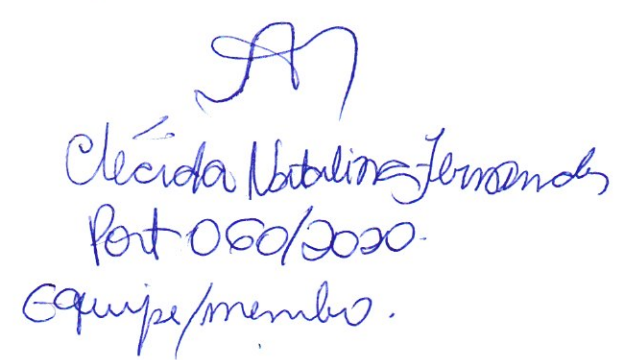 Clécida Natalina Fernandes
Port 060/2020.
Equipe/membro.